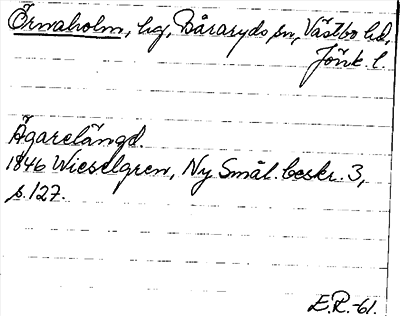 Örnaholm, hg, Båraryds sn, Västbo hd,
Jönk. l.
Ägarelängd.
1846 Wieselgren, Ny Smål. beskr. 3,
s. 127.
E.R.-61.